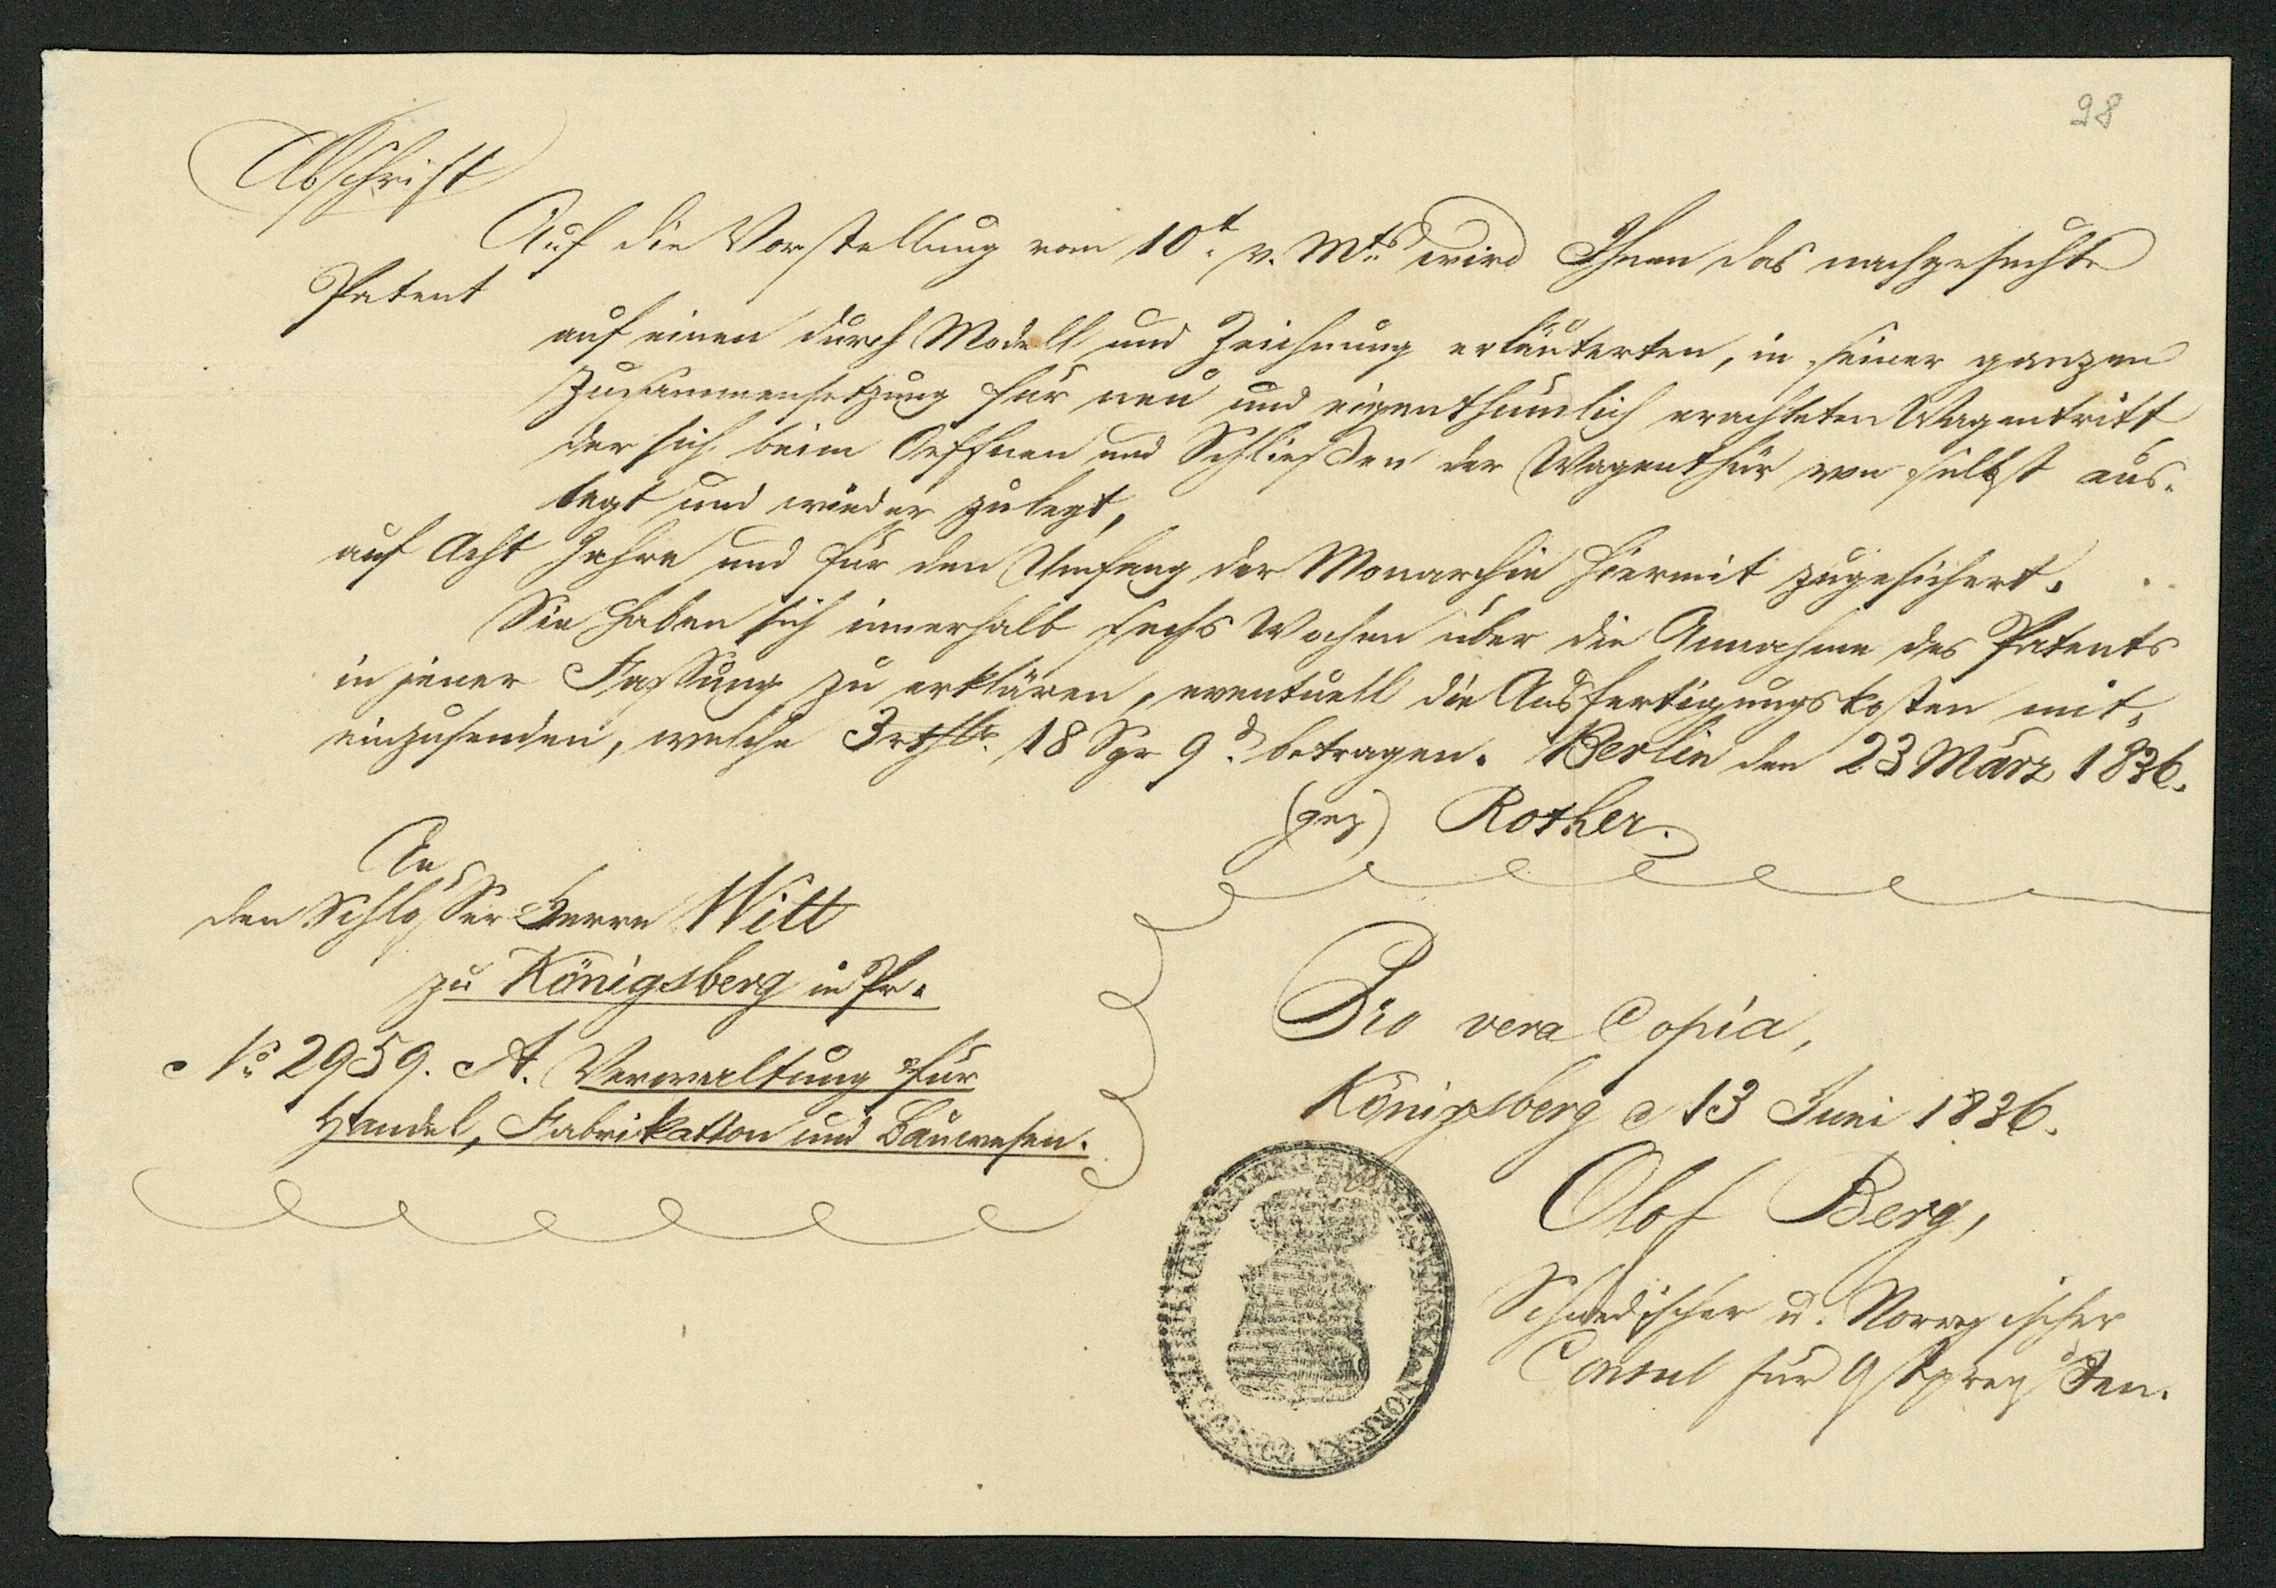 28
Abschrift
Auf die Vorstellung vom 10t. v. Mts. wird Ihnen das nachgesuchte
Patent
auf einen durch Modell und Zeichnung erläuterten, in seiner ganzen
Zusammensetzung für neu und eigenthümlich erachteten Wagentritt
der sich beim Oeffnen und Schließen der Wagenthür von selbst aus-
legt und wieder zulegt,
auf Acht Jahre und für den Umfang der Monarchie hiermit zugesichert.
Sie haben sich innerhalb sechs Wochen über die Annahme des Patents
in jener Fassung zu erklären, eventuell die Ausfertigungskosten mit-
einzusenden, welche 3 rthlr. 18 Sgr 9 d. betragen. Berlin den 23 März 1836.
(gez) Rother.
An
den Schlosser Herrn Witt
zu Königsberg in Pr.
No 2959. A. Verwaltung für
Handel, Fabrikation und Bauwesen.
Pro vera Copia,
Königsberg d 13 Juni 1836.
Olof Berg,
Schwedischer u. Norwegischer
Consul für Ostpreußen.